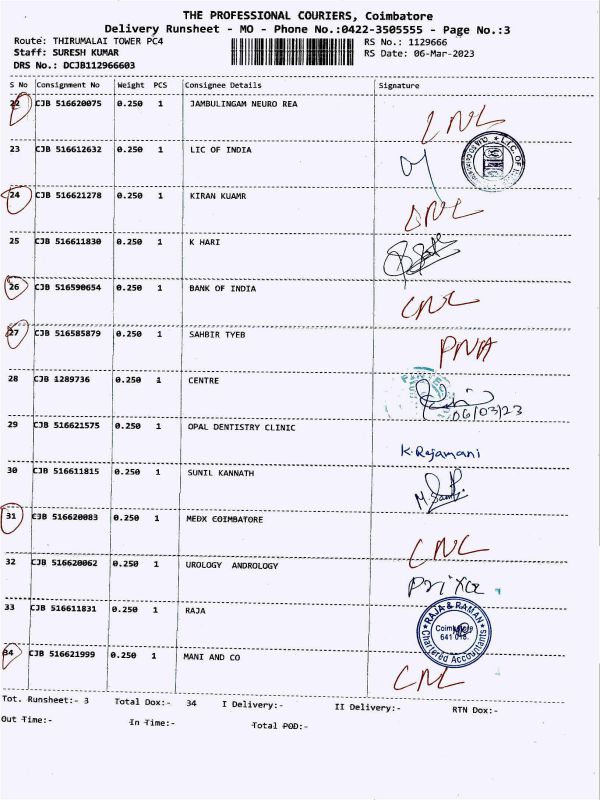 THE PROFESSIONAL COURIERS, Coimbatore
Delivery Runsheet - MO - Phone No.:0422-3505555 - Page No.:3
Route: THIRUMALAI TOWER PC4 RS No.: 1129666
Staff: SURESH KUMAR RS Date: 06-Mar-2023
DRS No.: DCJB112966603
S No Consignment No Weight PCS Consignee Details Signature
22 CJB 516620075 0.250 1 JAMBULINGAM NEURO REA CNL
23 CJB 516612632 0.250 1 LIC OF INDIA
L.I.C. OF
24 CJB 516621278 0.250 1 KIRAN KUAMR CNL
25 CJB 516611830 0.250 1 K HARI
26 CJB 516590654 0.250 1 BANK OF INDIA CNL
27 CJB 516585879 0.250 1 SAHBIR TYEB PNA
28 CJB 1289736 0.250 1 CENTRE
06/03/23
29 CJB 516621575 0.250 1 OPAL DENTISTRY CLINIC
K.Rajamani
30 CJB 516611815 0.250 1 SUNIL KANNATH
31 CJB 516620083 0.250 1 MEDX COIMBATORE CNL
32 CJB 516620062 0.250 1 UROLOGY ANDROLOGY
33 CJB 516611831 0.250 1 RAJA
RAJA & RAMAN
Coimbatore
641 018.
Chartered Accountants
34 CJB 516621999 0.250 1 MANI AND CO CNL
Tot. Runsheet:- 3 Total Dox:- 34 I Delivery:- II Delivery:- RTN Dox:-
Out Time:- In Time:- Total POD:-